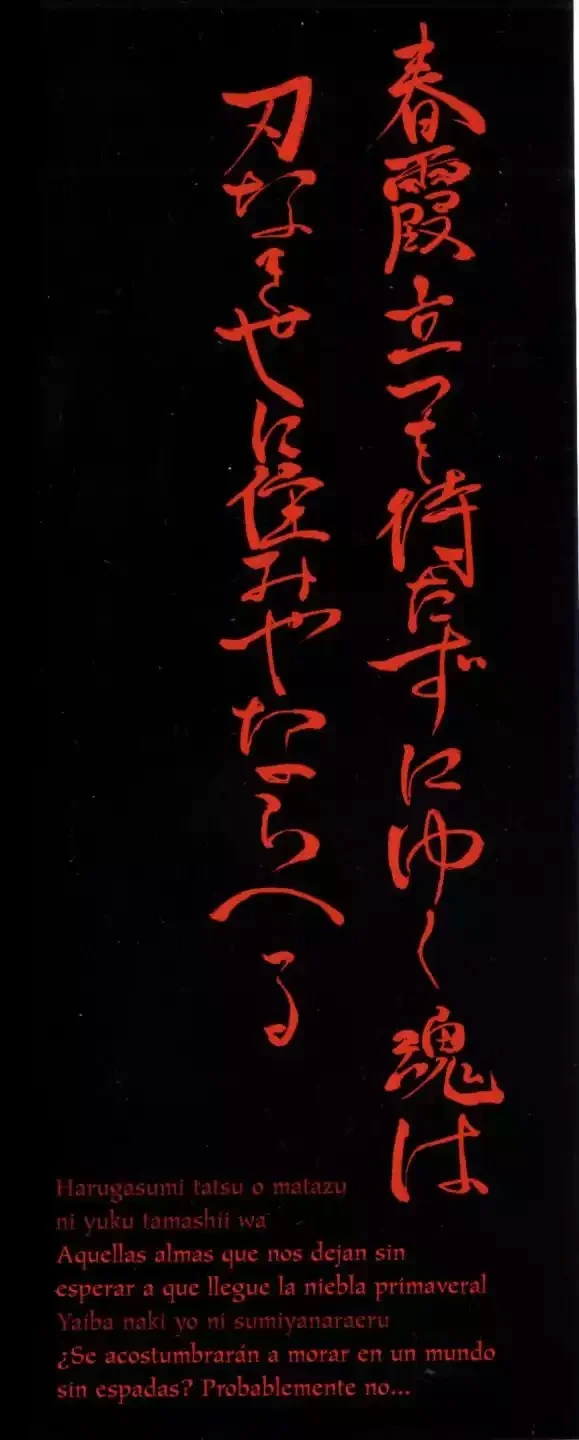 春霞立つを待たずにゆく魂は
刃なきせに住みやならへる
Harugasumi tatsu o matazu
ni yuku tamashii wa
Aquellas almas que nos dejan sin
esperar a que llegue la niebla primaveral
Yaiba naki yo ni sumiyanaraeru
¿Se acostumbrarán a morar en un mundo
sin espadas? Probablemente no...